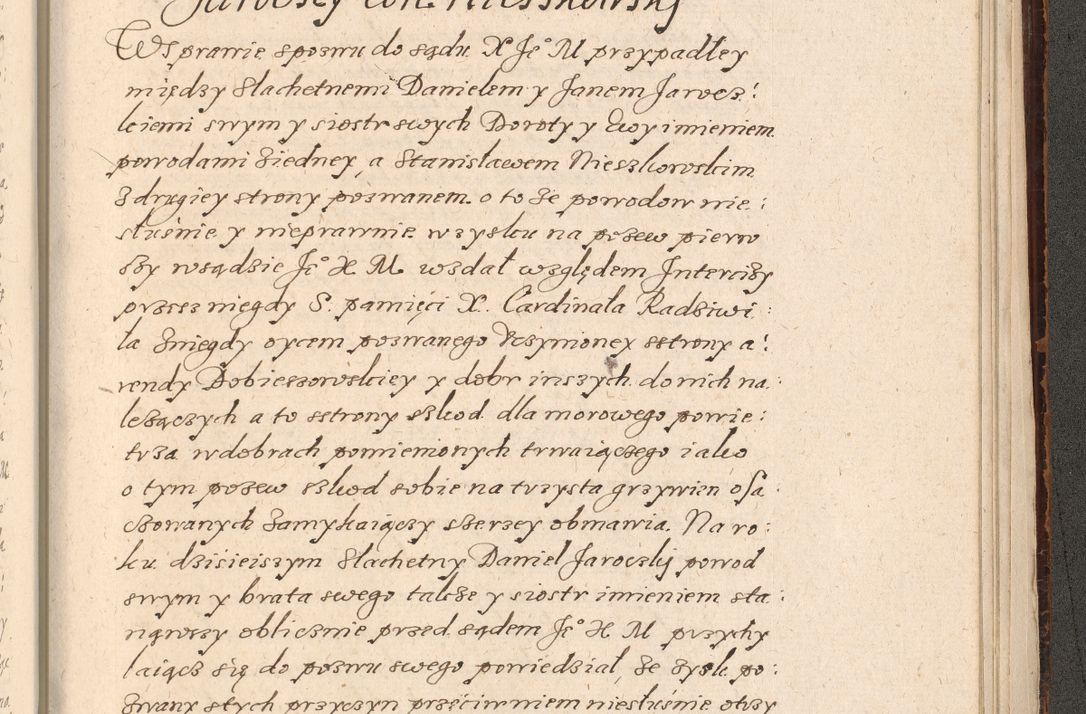 Jaroczcy con. Nieszkowskij
W sprawie z pozwu do sądu X Je° M przypadłey
między Slachetnemi Danielem y Janem Jarocz:
kciemi swym y siostr swych Doroty y Ewy imieniem
powodami ziedney, a Stanisławem Nieszkowskim
z drugiey strony pozwanem. o to że powodow nie:
słusnie y nieprawnie w zysku na pozew pierw
szy w sądzie Je° X M. wzdał względem Intercizy
przez niegdy S. pamięci X. Cardinała Radziwi:
ła z niegdy oycem pozwanego Uczynioney z strony a:
rendy Dobieszowskiey y dobr inszych do nich na:
leżączych a to z strony szkod dla morowego powie:
trza w dobrach pomienionych trwaiączego iako
o tym pozew szkod sobie na trzysta grzywien osza:
czowanych zamykaiączy szerzey obmawia. Na ro:
ku dzisieiszym Slachetny Daniel Jaroczkij powod
swym y brata swego także y siostr imieniem sta:
nąwszy oblicznie przed sądem Je° X M przychy
laiącz się do pozwu swego powiedział, że zysk po:
zwany z tych przyczyn przeciw niem niesłusnie otrzy